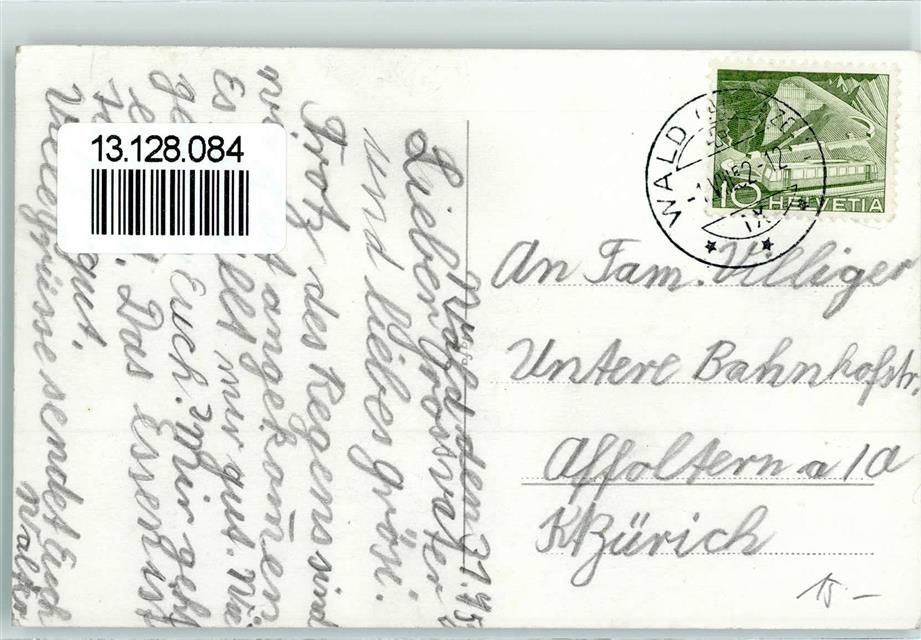 13.128.084
WALD
10 HELVETIA
An Fam. Villiger
Untere Bahnhofstr.
Affoltern a/A
Kt Zürich
15.-
Wald den 31.7.52
Lieber Grosvater
und liebes grosi.
Trotz des Regens sind
wir angekomen.
Es gefällt mir gut. Wie
geht Euch. Mir geht
Das Essen ist
gut.
Viele grüsse sendet Euch
Walter